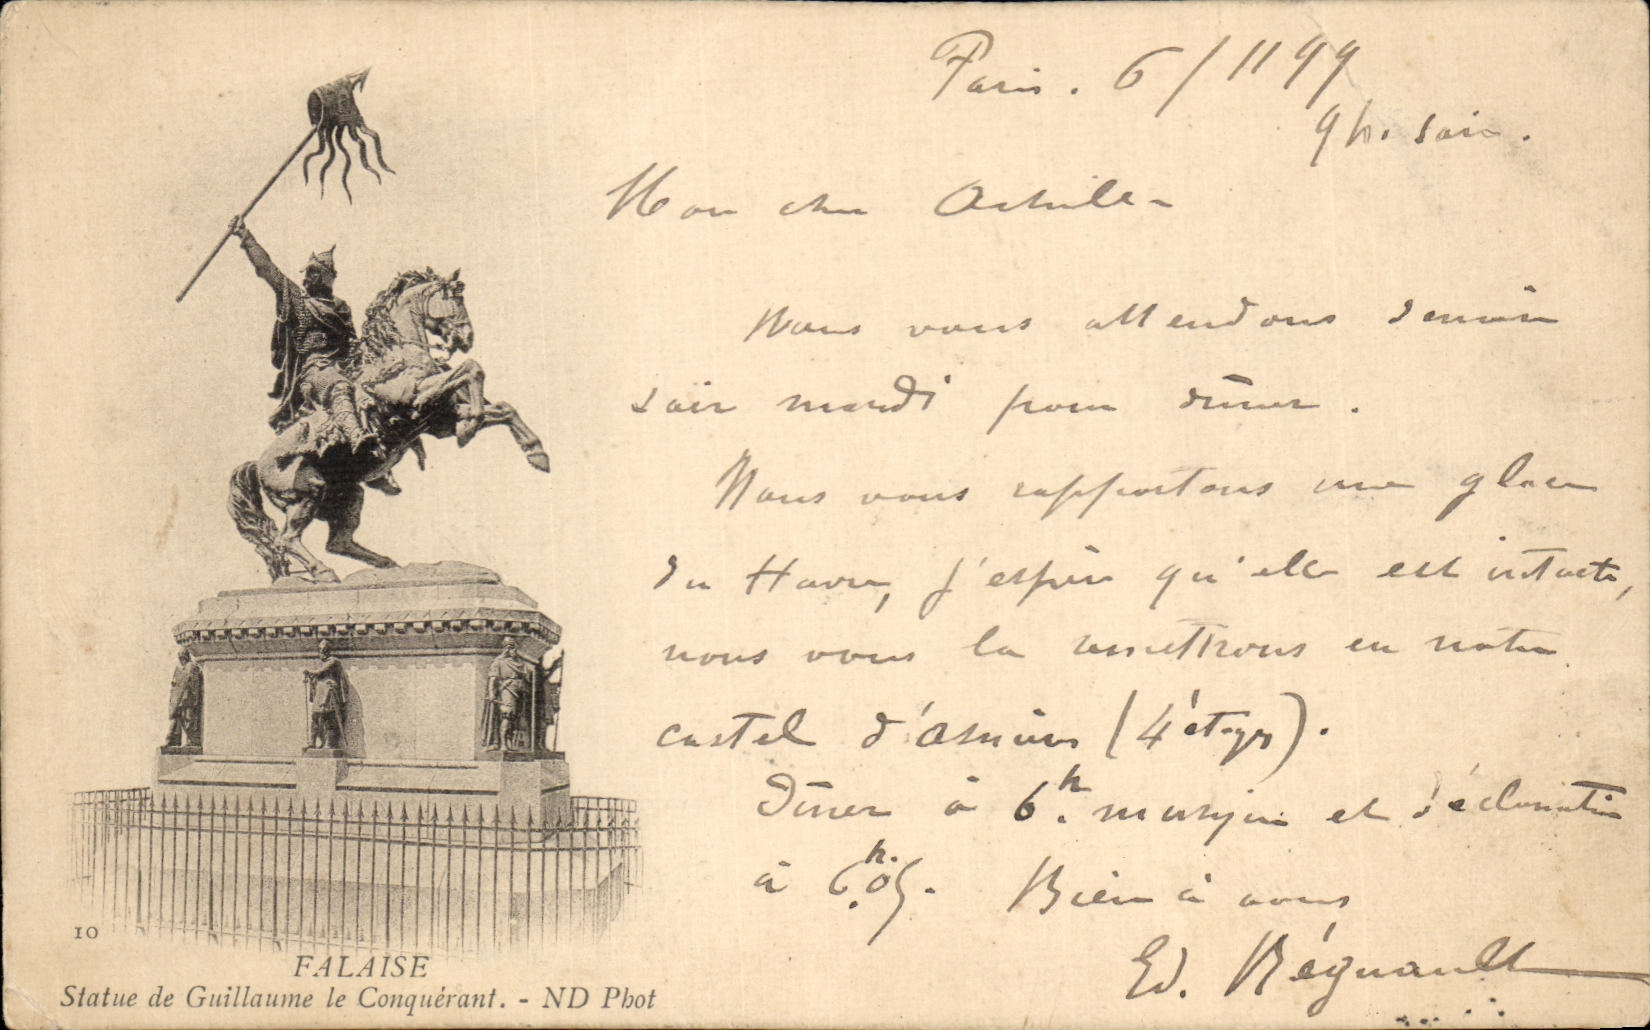 Paris. 6/11 99
9h. soir.
Mon cher Achille
Nous vous attendons demain
soir mardi pour dîner.
Nous vous rapportons une glace
du Havre, j'espère qu'elle est intacte,
nous vous la remettrons en notre
castel d'Asnières (4 étages).
Dîner à 6h. et
à 6h.05. Bien à vous
Ed. Régnault
10
FALAISE
Statue de Guillaume le Conquérant. - ND Phot